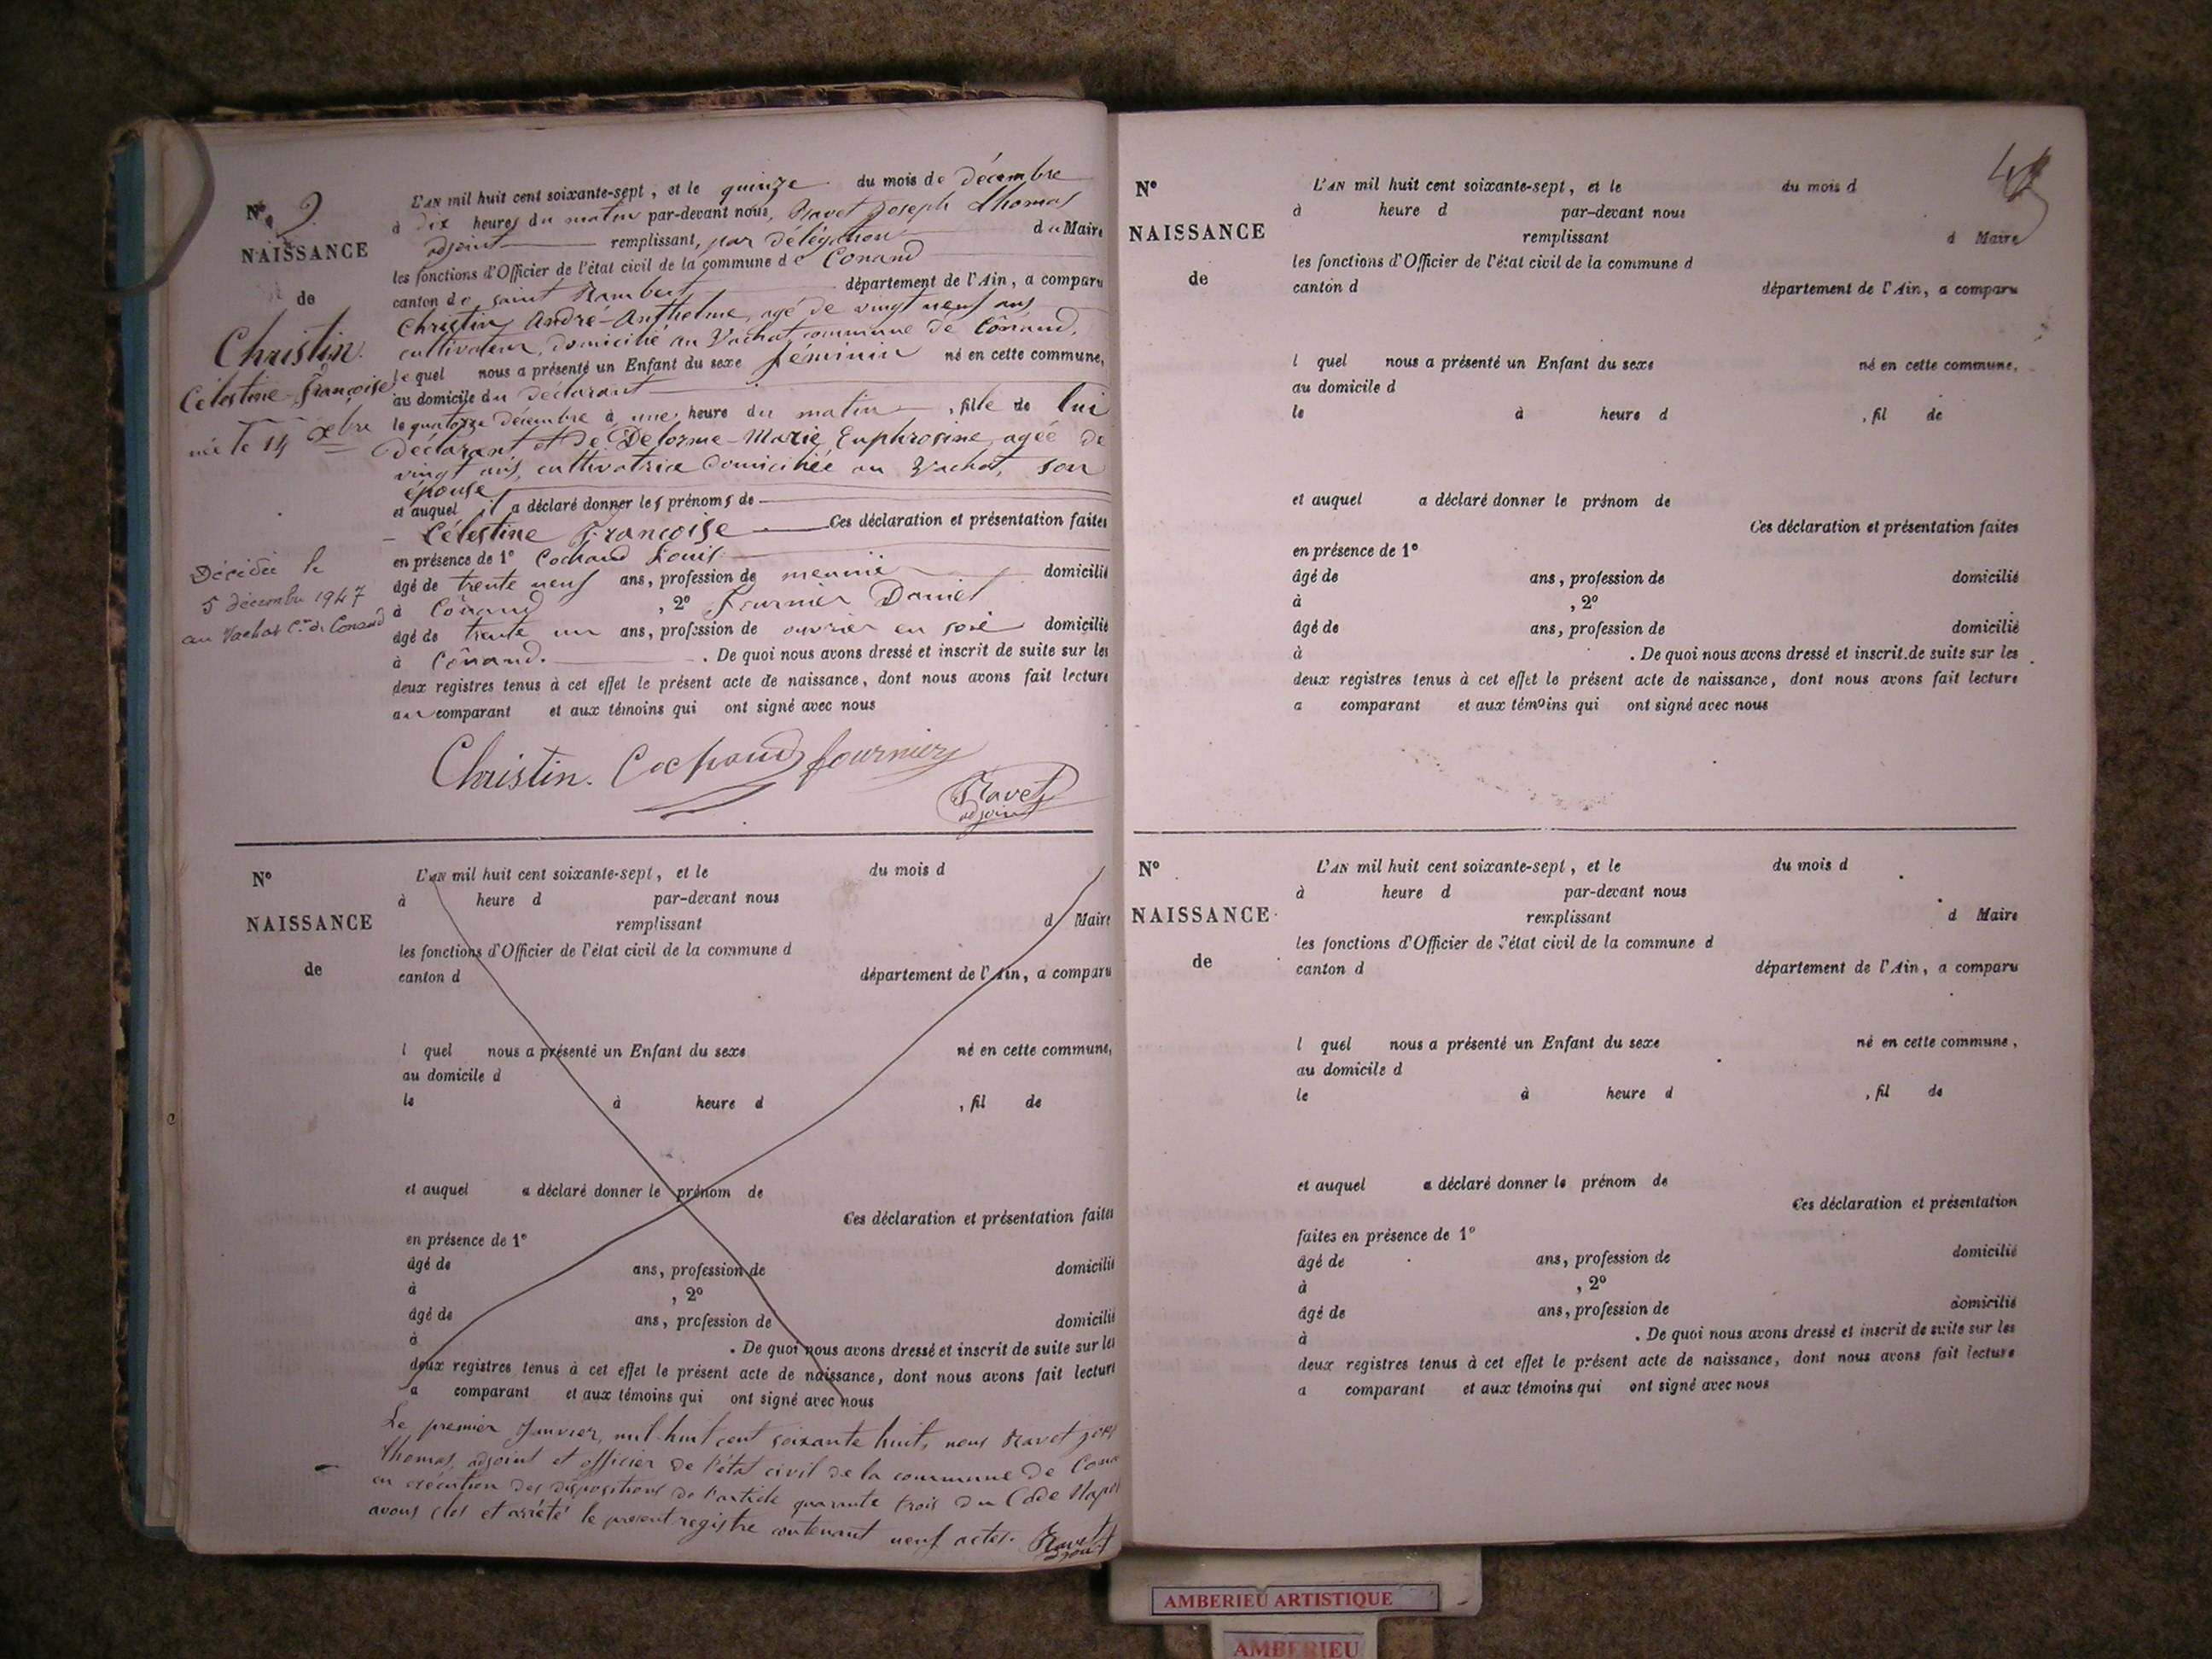 N° 9
NAISSANCE
de
Christin
Célestine-Françoise
née le 14 Xbre
Décédée le
5 décembre 1947
au Vachat Cne de Conand
L'AN mil huit cent soixante-sept, et le quinze du mois de décembre
à dix heures du matin par-devant nous, Ravet Joseph Thomas
adjoint remplissant, par délégation du Maire
les fonctions d'Officier de l'état civil de la commune de Conand
canton de saint Rambert département de l'Ain, a comparu
Christin André-Anthelme, agé de vingt neuf ans
cultivateur, domicilié au Vachat, commune de Cônand,
lequel nous a présenté un Enfant du sexe féminin né en cette commune,
au domicile du déclarant
le quatorze décembre à une heure du matin, fille de lui
déclarant et de Delorme-Marie Euphrosine, agée de
vingt ans, cultivatrice domiciliée au Vachat, son
épouse
et auquel il a déclaré donner les prénoms de
Célestine Françoise Ces déclaration et présentation faites
en présence de 1° Cochand Louis
âgé de trente neuf ans, profession de meunier domicilié
à Cônand, 2° Fournier Daniel
âgé de trente un ans, profession de ouvrier en soie domicilié
à Cônand. . De quoi nous avons dressé et inscrit de suite sur les
deux registres tenus à cet effet le présent acte de naissance, dont nous avons fait lecture
au comparant et aux témoins qui ont signé avec nous
Christin. Cochand fournier
Ravet
adjoint
N°
NAISSANCE
de
L'AN mil huit cent soixante-sept, et le du mois d
à heure d par-devant nous
remplissant d Maire
les fonctions d'Officier de l'état civil de la commune d
canton d département de l'Ain, a comparu
l quel nous a présenté un Enfant du sexe né en cette commune,
au domicile d
le à heure d , fil de
et auquel a déclaré donner le prénom de
Ces déclaration et présentation faites
en présence de 1°
âgé de ans, profession de domicilié
à , 2°
âgé de ans, profession de domicilié
à . De quoi nous avons dressé et inscrit de suite sur les
deux registres tenus à cet effet le présent acte de naissance, dont nous avons fait lecture
a comparant et aux témoins qui ont signé avec nous
Le premier Janvier, mil huit cent soixante huit, nous Ravet
Thomas, adjoint et officier de l'état civil de la commune de
en exécution des dispositions de l'article quarante trois du Code
avons clos et arrêté le présent registre contenant neuf actes. Ravet
adjoint
N°
NAISSANCE
de
L'AN mil huit cent soixante-sept, et le du mois d
à heure d par-devant nous
remplissant d Maire
les fonctions d'Officier de l'état civil de la commune d
canton d département de l'Ain, a comparu
l quel nous a présenté un Enfant du sexe né en cette commune,
au domicile d
le à heure d , fil de
et auquel a déclaré donner le prénom de
Ces déclaration et présentation faites
en présence de 1°
âgé de ans, profession de domicilié
à , 2°
âgé de ans, profession de domicilié
à . De quoi nous avons dressé et inscrit de suite sur les
deux registres tenus à cet effet le présent acte de naissance, dont nous avons fait lecture
a comparant et aux témoins qui ont signé avec nous
N°
NAISSANCE
de
L'AN mil huit cent soixante-sept, et le du mois d
à heure d par-devant nous
remplissant d Maire
les fonctions d'Officier de l'état civil de la commune d
canton d département de l'Ain, a comparu
l quel nous a présenté un Enfant du sexe né en cette commune,
au domicile d
le à heure d , fil de
et auquel a déclaré donner le prénom de
Ces déclaration et présentation
faites en présence de 1°
âgé de ans, profession de domicilié
à , 2°
âgé de ans, profession de domicilié
à . De quoi nous avons dressé et inscrit de suite sur les
deux registres tenus à cet effet le présent acte de naissance, dont nous avons fait lecture
a comparant et aux témoins qui ont signé avec nous
AMBERIEU ARTISTIQUE
AMBERIEU